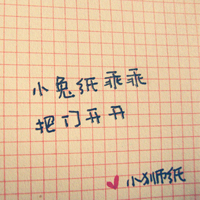 小兔纸乖乖
把门开开
小狮纸